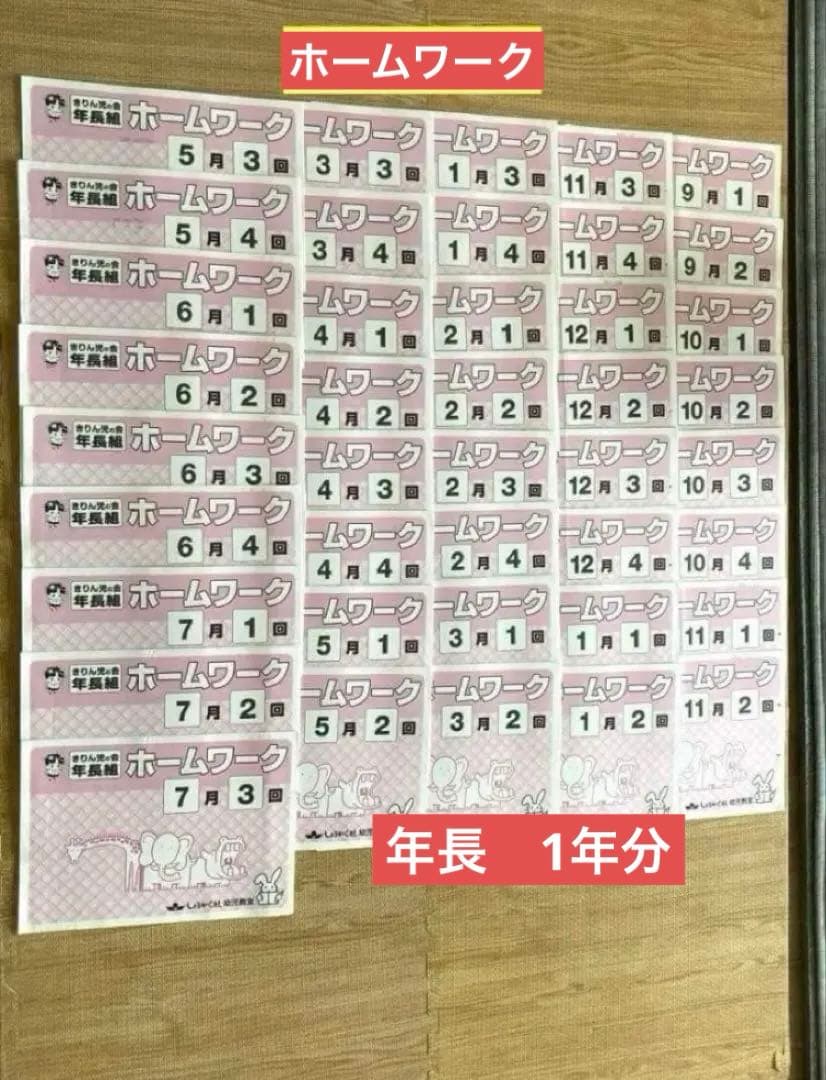 ホームワーク
きりん児の会
年長組 ホームワーク
5月 3回
きりん児の会
年長組 ホームワーク
5月 4回
きりん児の会
年長組 ホームワーク
6月 1回
きりん児の会
年長組 ホームワーク
6月 2回
きりん児の会
年長組 ホームワーク
6月 3回
きりん児の会
年長組 ホームワーク
6月 4回
きりん児の会
年長組 ホームワーク
7月 1回
きりん児の会
年長組 ホームワーク
7月 2回
きりん児の会
年長組 ホームワーク
7月 3回
しょうがく社 幼児教室
ームワーク
3月 3回
ームワーク
3月 4回
ームワーク
4月 1回
ームワーク
4月 2回
ームワーク
4月 3回
ームワーク
4月 4回
ームワーク
5月 1回
ームワーク
5月 2回
しょうがく社 幼児教
ームワーク
1月 3回
ームワーク
1月 4回
ームワーク
2月 1回
ームワーク
2月 2回
ームワーク
2月 3回
ームワーク
2月 4回
ームワーク
3月 1回
ームワーク
3月 2回
ームワーク
11月 3回
ームワーク
11月 4回
ームワーク
12月 1回
ームワーク
12月 2回
ームワーク
12月 3回
ームワーク
12月 4回
ームワーク
1月 1回
ームワーク
1月 2回
ームワーク
9月 1回
ームワーク
9月 2回
ームワーク
10月 1回
ームワーク
10月 2回
ームワーク
10月 3回
ームワーク
10月 4回
ームワーク
11月 1回
ームワーク
11月 2回
年長 1年分